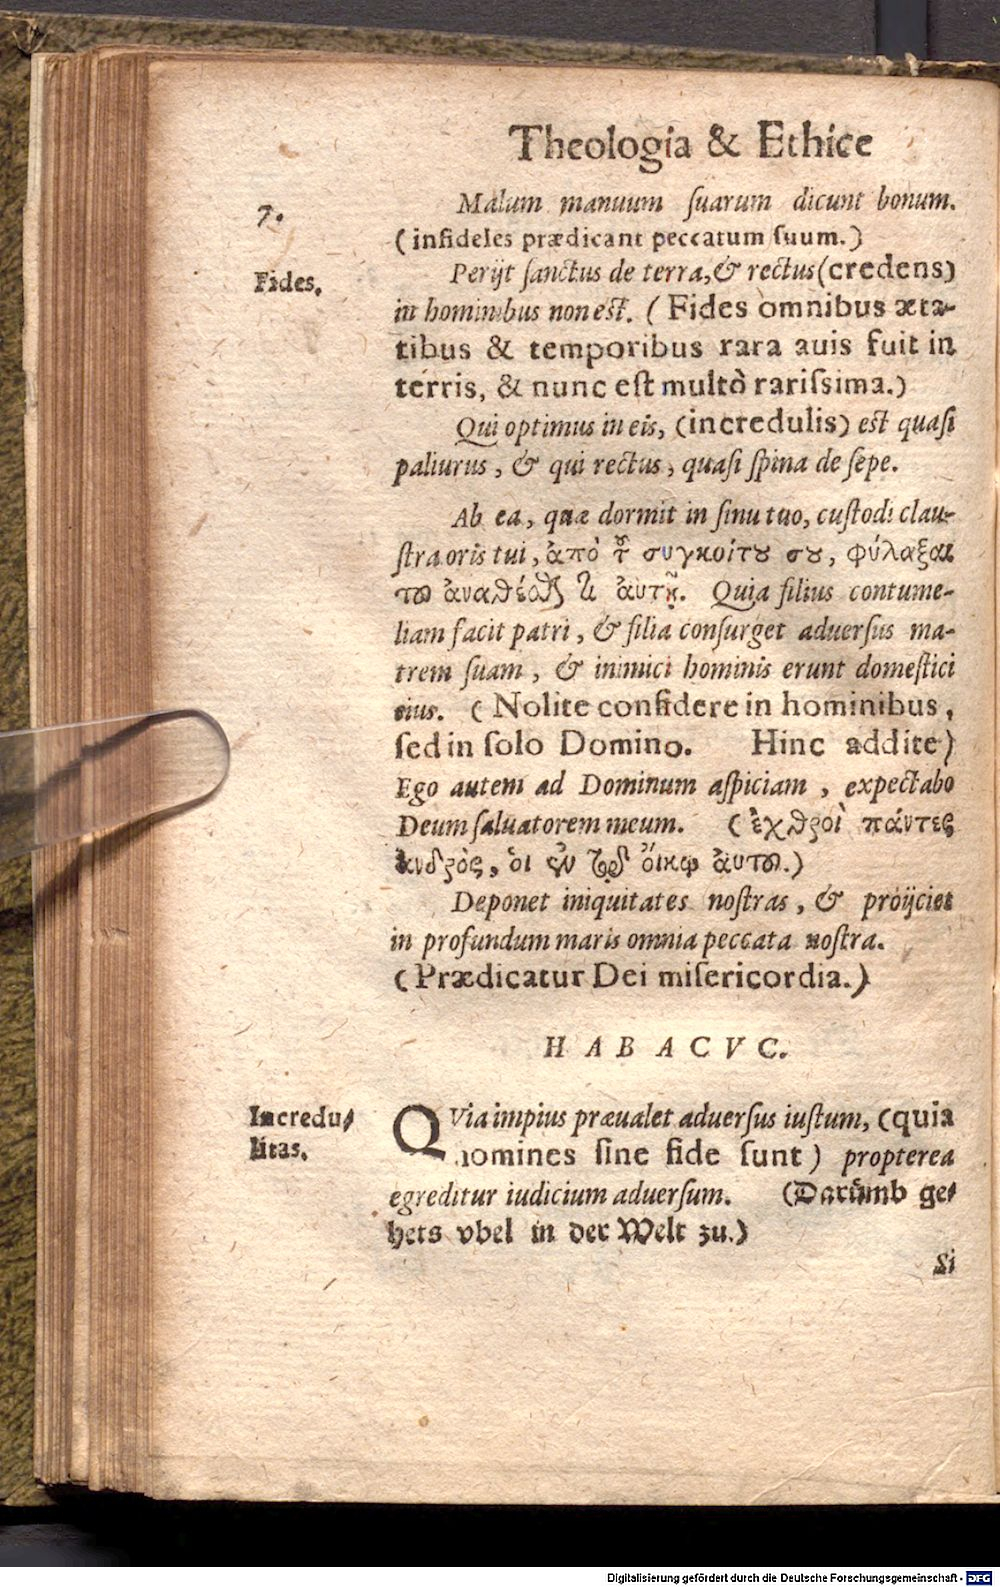 Theologia & Ethice
7.
Malum manuum ſuarum dicunt bonum.
(infideles prædicant peccatum ſuum.)
Fides.
Perijt ſanctus de terra, & rectus (credens)
in hominibus non eſt. ( Fides omnibus æta-
tibus & temporibus rara auis fuit in
terris, & nunc eſt multò rariſsima.)
Qui optimus in eis, (incredulis) eſt quaſi
paliurus, & qui rectus, quaſi ſpina de ſepe.
Ab ea, quæ dormit in ſinu tuo, cuſtodi clau-
ſtra oris tui, ἀπὸ τῆς συγκοίτου σου, φύλαξαι
τοῦ ἀναθέσθαι τι ἀυτῇ. Quia filius contume-
liam facit patri, & filia conſurget aduerſus ma-
trem ſuam, & inimici hominis erunt domeſtici
eius. ( Nolite confidere in hominibus,
ſed in ſolo Domino. Hinc addite)
Ego autem ad Dominum aſpiciam, expectabo
Deum ſaluatorem meum. (ἐχθροὶ πάντες
ἀνδρὸς, ὁι ἐν τῷ ὄικῳ ἀυτοῦ.)
Deponet iniquitates noſtras, & proijciet
in profundum maris omnia peccata noſtra.
(Prædicatur Dei miſericordia.)
HABACVC.
Incredu-
litas.
QVia impius præualet aduerſus iuſtum, (quia
homines ſine fide ſunt) propterea
egreditur iudicium aduerſum. (Darumb ge-
hets vbel in der Welt zu.)
Si
Digitalisierung gefördert durch die Deutsche Forschungsgemeinschaft - DFG